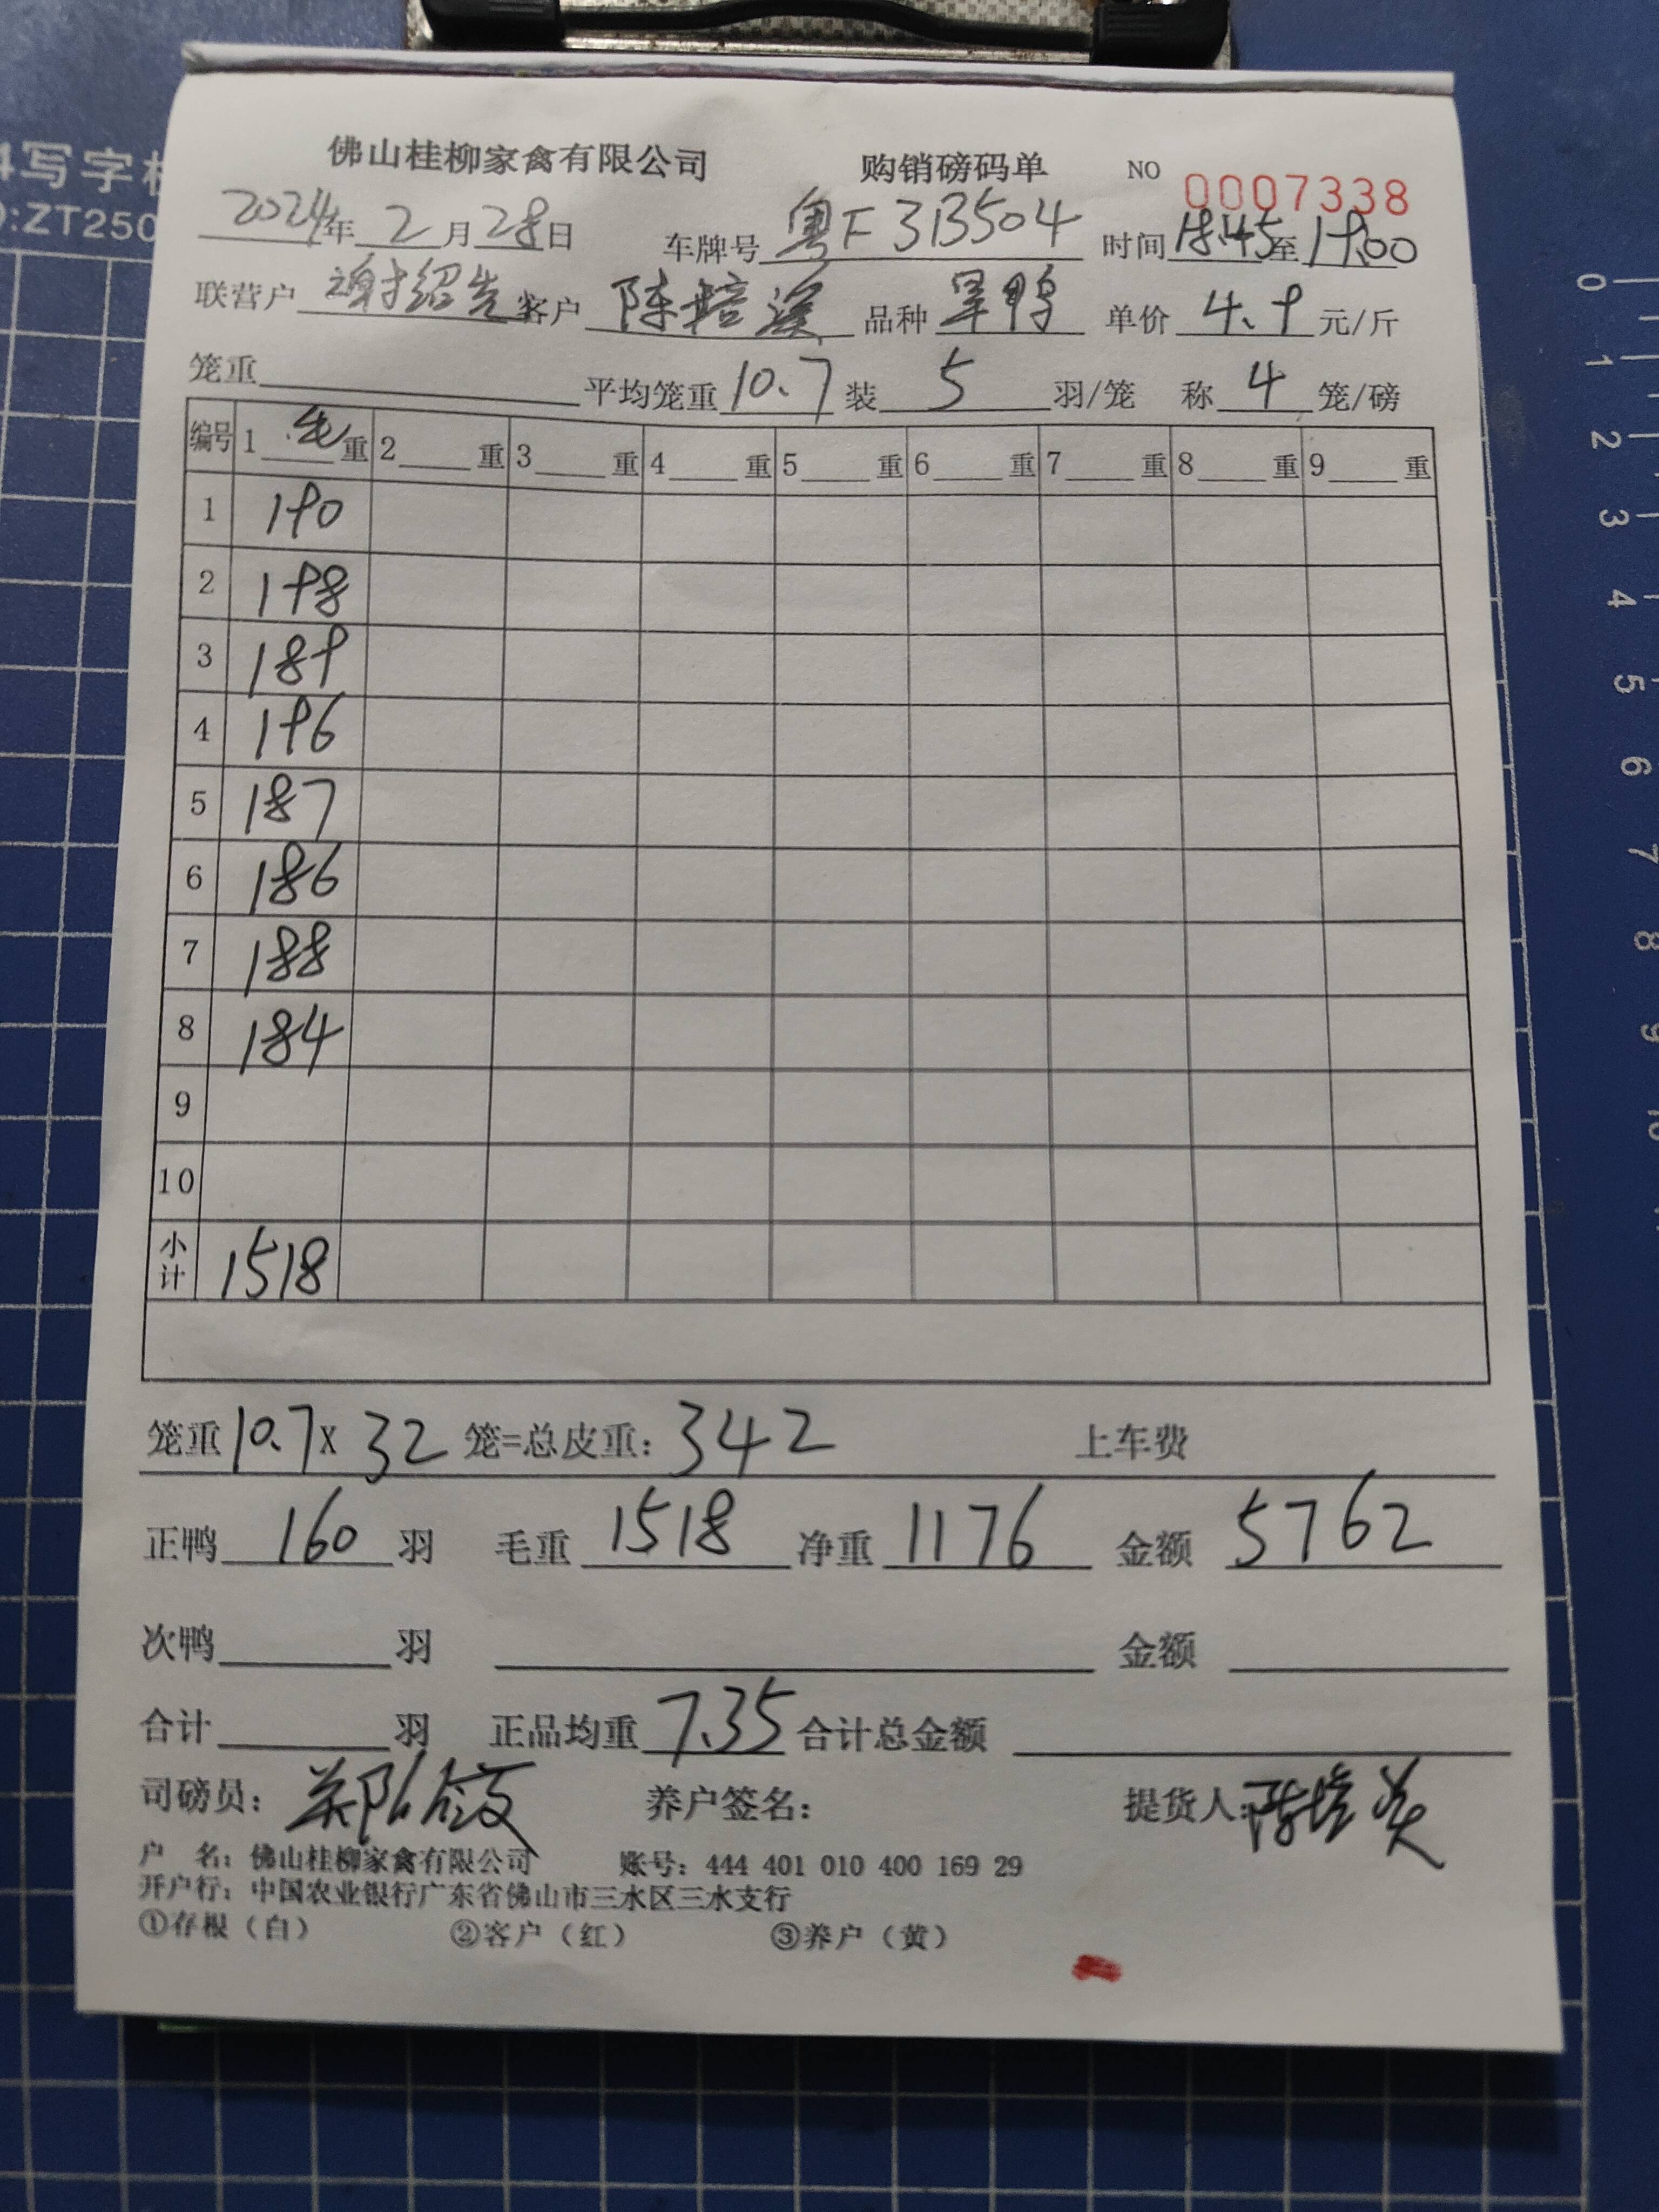 4写字
:ZT250
佛山桂柳家禽有限公司 购销磅码单 NO 0007338
2024年2月28日 车牌号 粤F313504 时间 18:45至19:00
联营户 谢绍先 客户 陈培溪 品种 旱鸭 单价 4.9 元/斤
笼重 平均笼重 10.7 装 5 羽/笼 称 4 笼/磅
编号 1 毛 重 2 重 3 重 4 重 5 重 6 重 7 重 8 重 9 重
1 190
2 198
3 189
4 196
5 187
6 186
7 188
8 184
9
10
小计 1518
笼重 10.7 X 32 笼=总皮重: 342 上车费
正鸭 160 羽 毛重 1518 净重 1176 金额 5762
次鸭 羽 金额
合计 羽 正品均重 7.35 合计总金额
司磅员: 养户签名: 提货人:
户 名: 佛山桂柳家禽有限公司 账号: 444 401 010 400 169 29
开户行: 中国农业银行广东省佛山市三水区三水支行
①存根（白） ②客户（红） ③养户（黄）
0
1
2
3
4
5
6
7
8
9
10